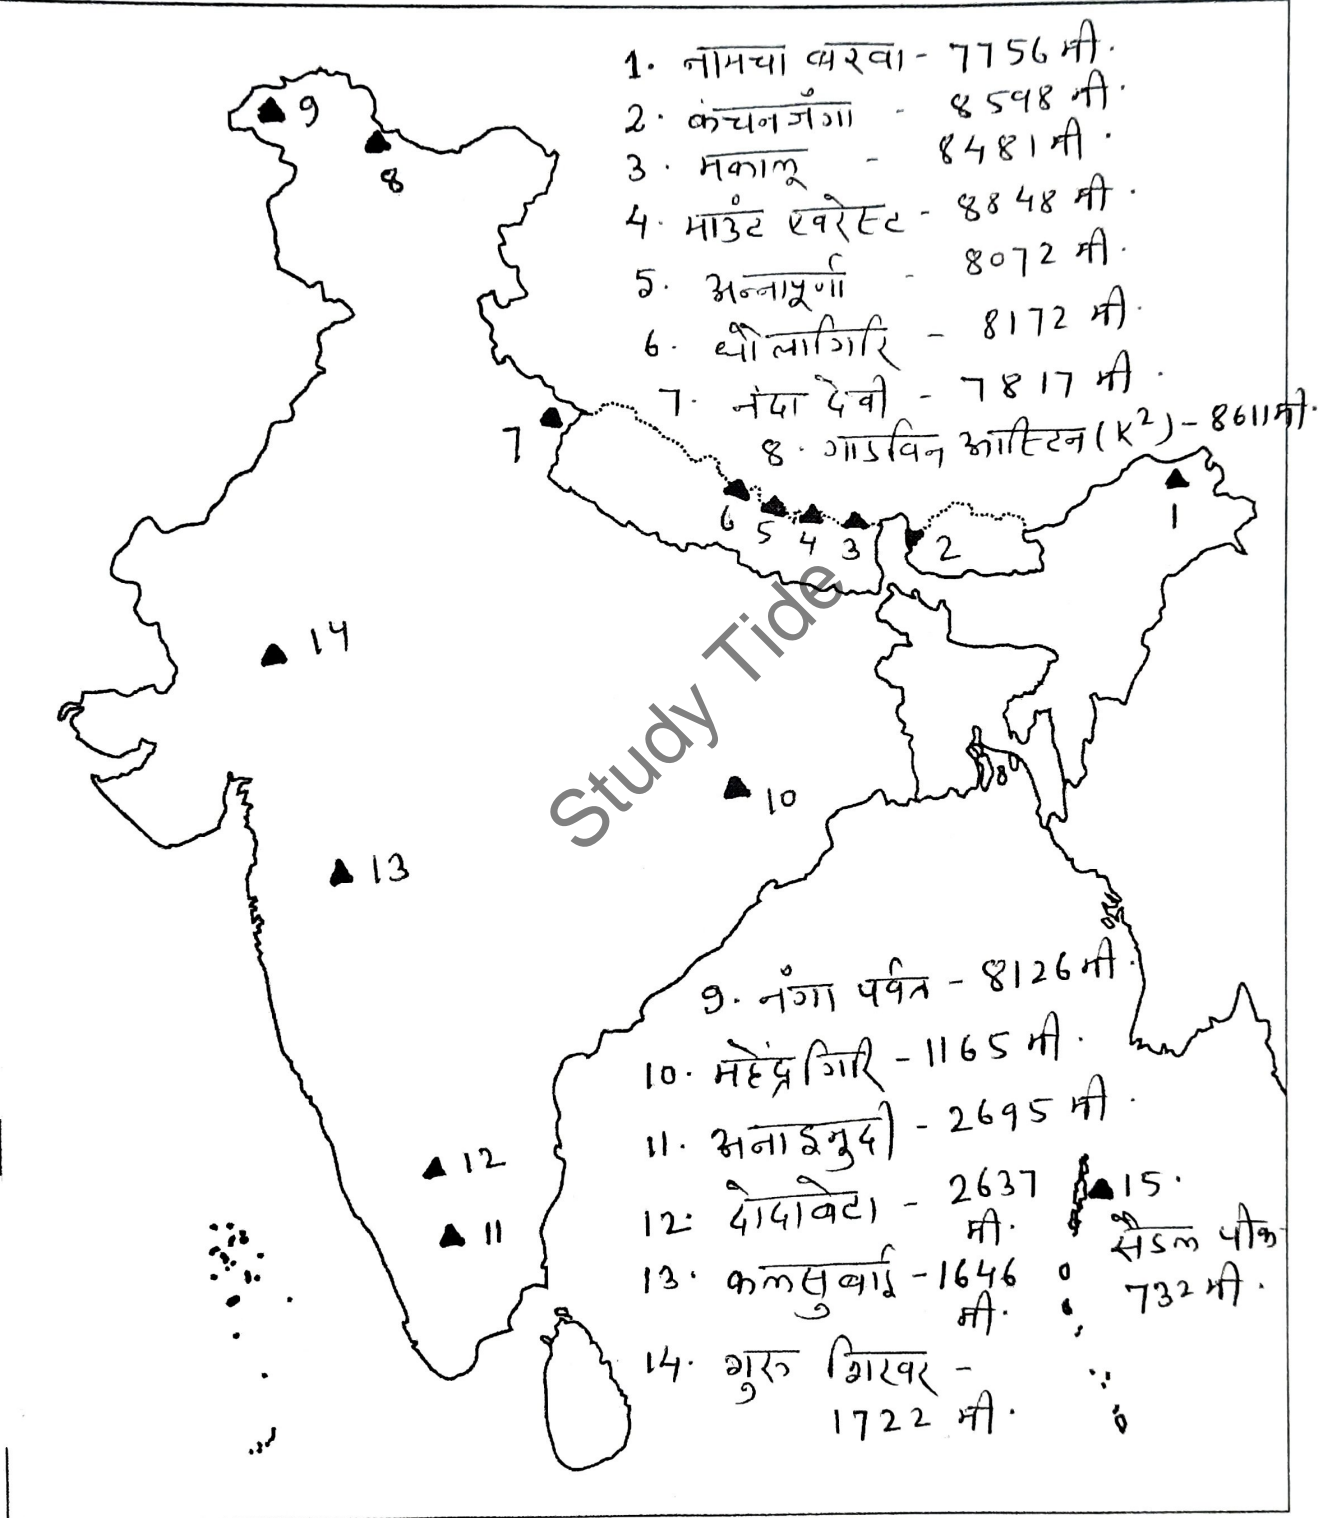 1. नामचा बरवा - 7756 मी.
2. कंचनजँगा - 8598 मी.
3. मकालू - 8481 मी.
4. माउंट एवरेस्ट - 8848 मी.
5. अन्नापूर्णा - 8072 मी.
6. धौलागिरि - 8172 मी.
7. नंदा देवी - 7817 मी.
8. गाडविन आस्टिन (K²) - 8611 मी.
9
8
7
6
5
4
3
2
1
14
Study Tide
10
13
9. नँगा पर्वत - 8126 मी.
10. महेंद्रगिरि - 1165 मी.
11. अनाइमुदी - 2695 मी.
12. दोदाबेटा - 2637
मी.
13. कलसुबाई - 1646
मी.
14. गुरु शिखर -
1722 मी.
12
11
15.
सैडल पीक
732 मी.